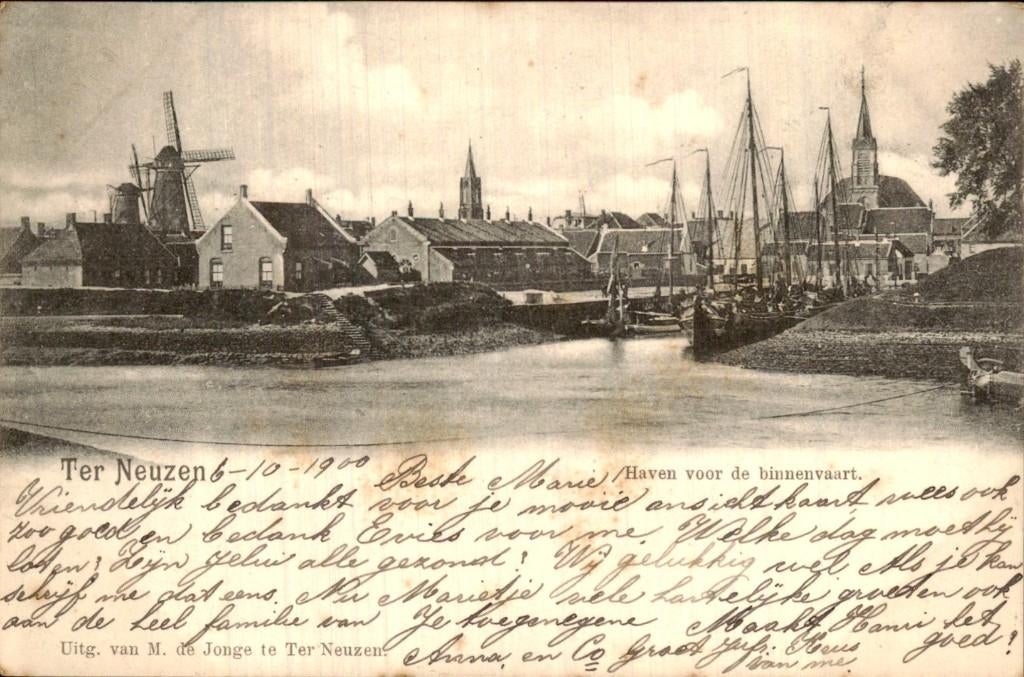 Ter Neuzen 6-10-1900 Beste Marie! Haven voor de binnenvaart.
Vriendelijk bedankt voor je mooie ansichtkaart wees ook
zoo goed en bedank Evies voor me. Welke dag moet hij
loten? Zijn jelui alle gezond? Wij gelukkig wel. Als je kan
schrijf me dat eens. Nu Marietje vele hartelijke groeten ook
aan de heel familie van Je toegenegene Maakt Hani het
Uitg. van M. de Jonge te Ter Neuzen. Anna, en Co Groet Jufr. goed?
van me.